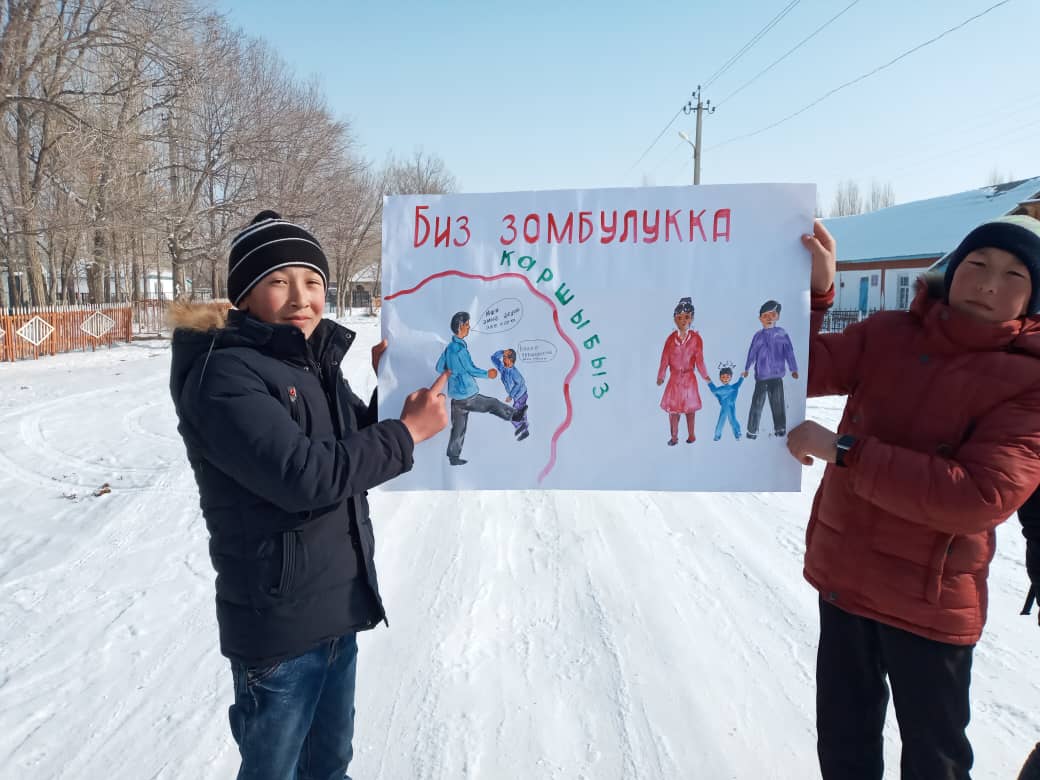 Биз зомбулукка
каршыбыз